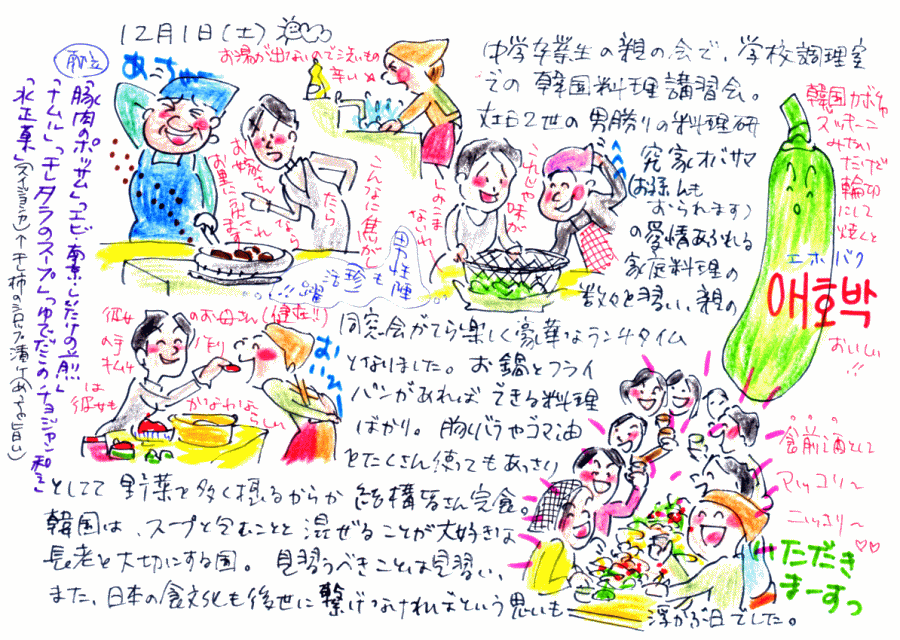 12月1日(土)
お湯が出ないので洗いもの
辛い
中学卒業生の親の会で、学校調理室
での韓国料理講習会。
在日2世の男勝りの料理研
究家オバサマ
(お孫さんも
おられます)
の愛情あふれる
家庭料理の
数々を習い、親の
同窓会がてら楽しく豪華なランチタイム
となりました。お鍋とフライ
パンがあればできる料理
ばかり。胸バラやゴマ油
をたくさん使ってもあっさり
としてて野菜を多く摂るからか結構皆さん完食。
韓国は、スープと包むことと混ぜることが大好きな
長老を大切にする国。見習うべきことは見習い、
また、日本の食文化も後世に繋げなければという思いも
浮かぶ日でした。
献立
「豚肉のポッサム」「エビ・南京・しいたけの煎」
「ナムル」「干しタラのスープ」「ゆでだこのチョジャン和え」
「水正菓」(スイジョンカ)↑干し柿のシロップ漬け(めっちゃ旨い)
あっちゃー
こんなに焦がし
たら
お嫁さんなら
お里に帰されます
男性陣
も珍
活躍
このままじゃ味が
ないわ
彼女のお母さん(健在!!)
の手作り
キムチ
は
彼女も
かなわない
らしい
おいひい
韓国カボチャ
ズッキーニ
みたい
だけど
輪切
にして
焼くと
エホバク
애호박
おいしい
!!
食前酒として
マッコリ~
ニッコリ~
いただき
まーすっ